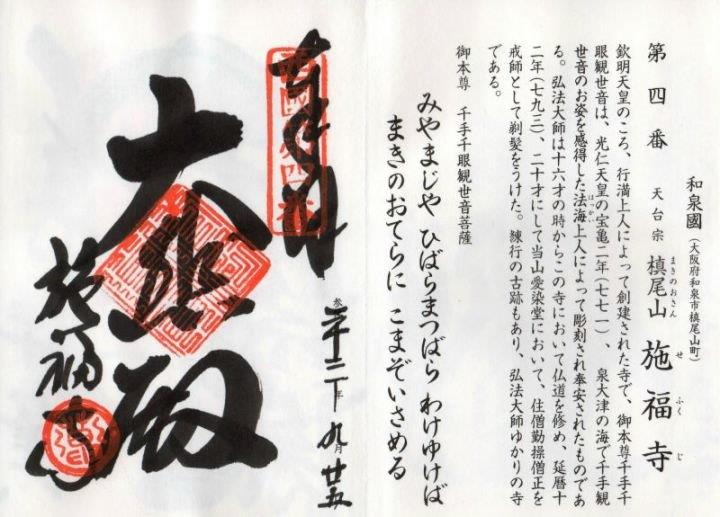 和泉國(大阪府和泉市槙尾山町)
第四番 天台宗 槙尾山 施福寺
まきのおさん せふくじ
欽明天皇のころ、行満上人によって創建された寺で、御本尊千手千
眼観世音は、光仁天皇の宝亀二年(七七一)、泉大津の海で千手観
世音のお姿を感得した法海上人によって彫刻され奉安されたものであ
ほっかい
る。弘法大師は十六才の時からこの寺において仏道を修め、延暦十
二年(七九三)、二十才にして当山愛染堂において、住僧勤操僧正を
戒師として剃髪をうけた。練行の古跡もあり、弘法大師ゆかりの寺
である。
御本尊 千手千眼観世音菩薩
みやまじや ひばらまつばら わけゆけば
まきのおてらに こまぞいさめる
奉拝
西國第四番
大悲殿
参
二十二年九月廿五
施福寺